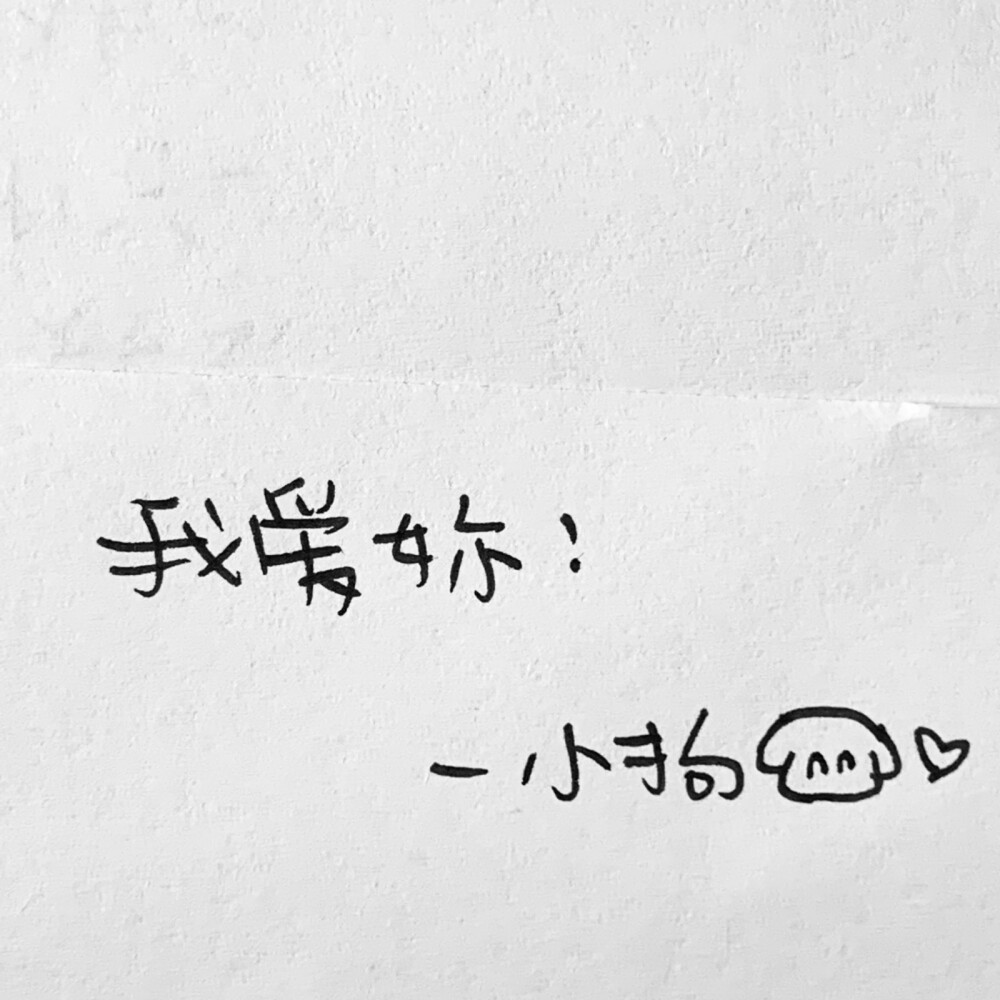 我愛妳!
-小狗